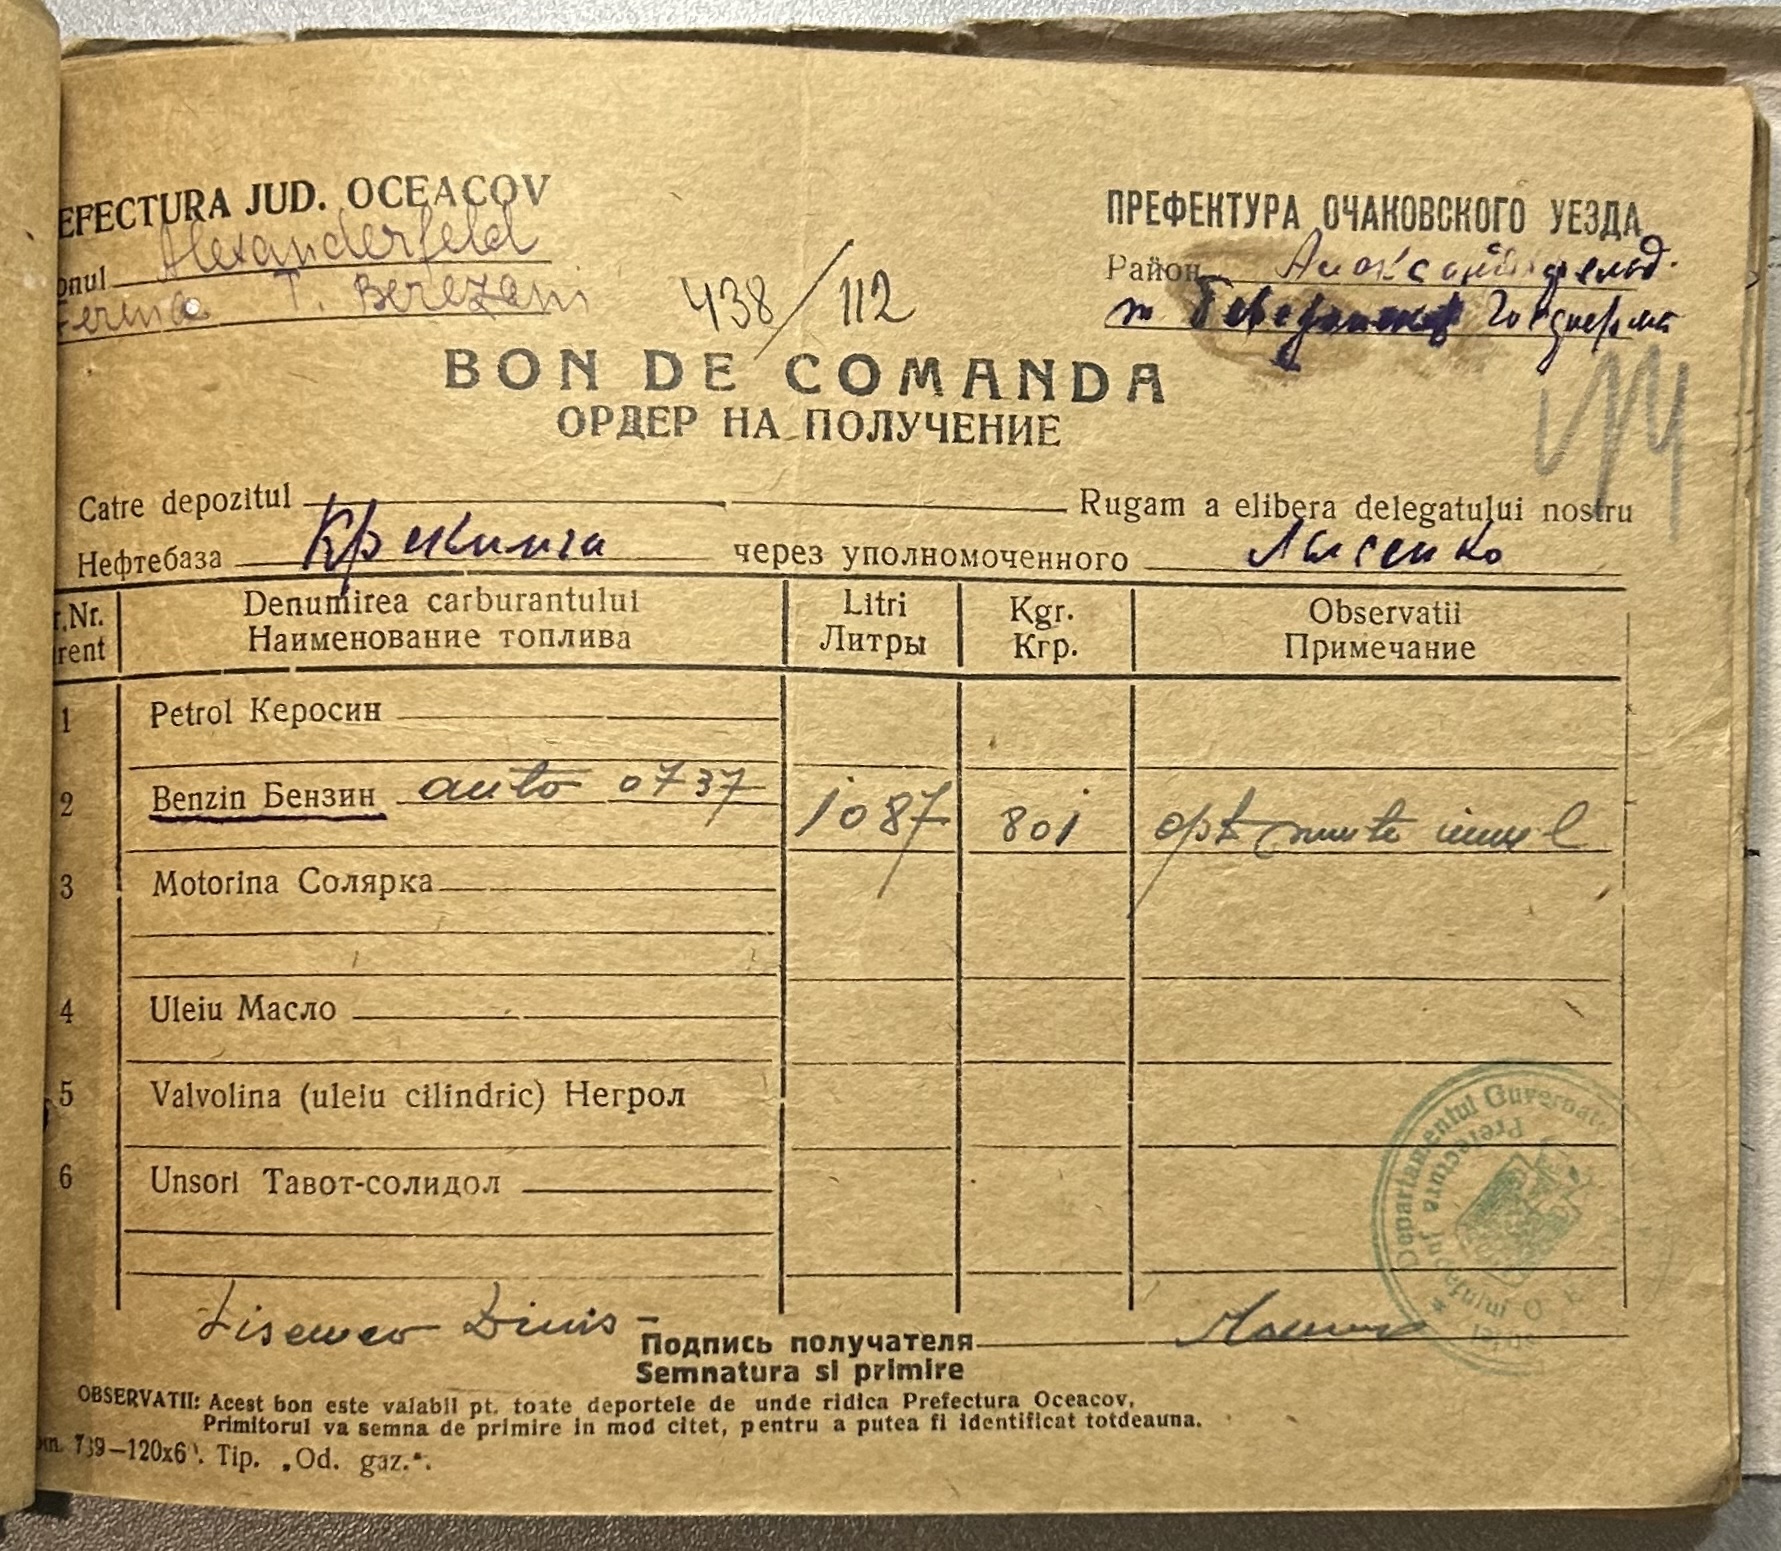 EFECTURA JUD. OCEACOV
onul Alexanderfeld
Ferma T. Berezani
438/112
ПРЕФЕКТУРА ОЧАКОВСКОГО УЕЗДА
Район
BON DE COMANDA
ОРДЕР НА ПОЛУЧЕНИЕ
114
Catre depozitul Rugam a elibera delegatului nostru
Нефтебаза Крекинга через уполномоченного Лысенко
r.Nr. Denumirea carburantului Litri Kgr. Observatii
rent Наименование топлива Литры Кгр. Примечание
1 Petrol Керосин
2 Benzin Бензин auto 0737 1087 801 opt
3 Motorina Солярка
4 Uleiu Масло
5 Valvolina (uleiu cilindric) Негрол
6 Unsori Тавот-солидол
Departamentul Guvernat
Prefectura Județului O
Lisenco Dinis -
Подпись получателя
Semnatura si primire
OBSERVATII: Acest bon este valabil pt. toate deportele de unde ridica Prefectura Oceacov,
Primitorul va semna de primire in mod citet, pentru a putea fi identificat totdeauna.
m. 739—120x6. Tip. „Od. gaz.".